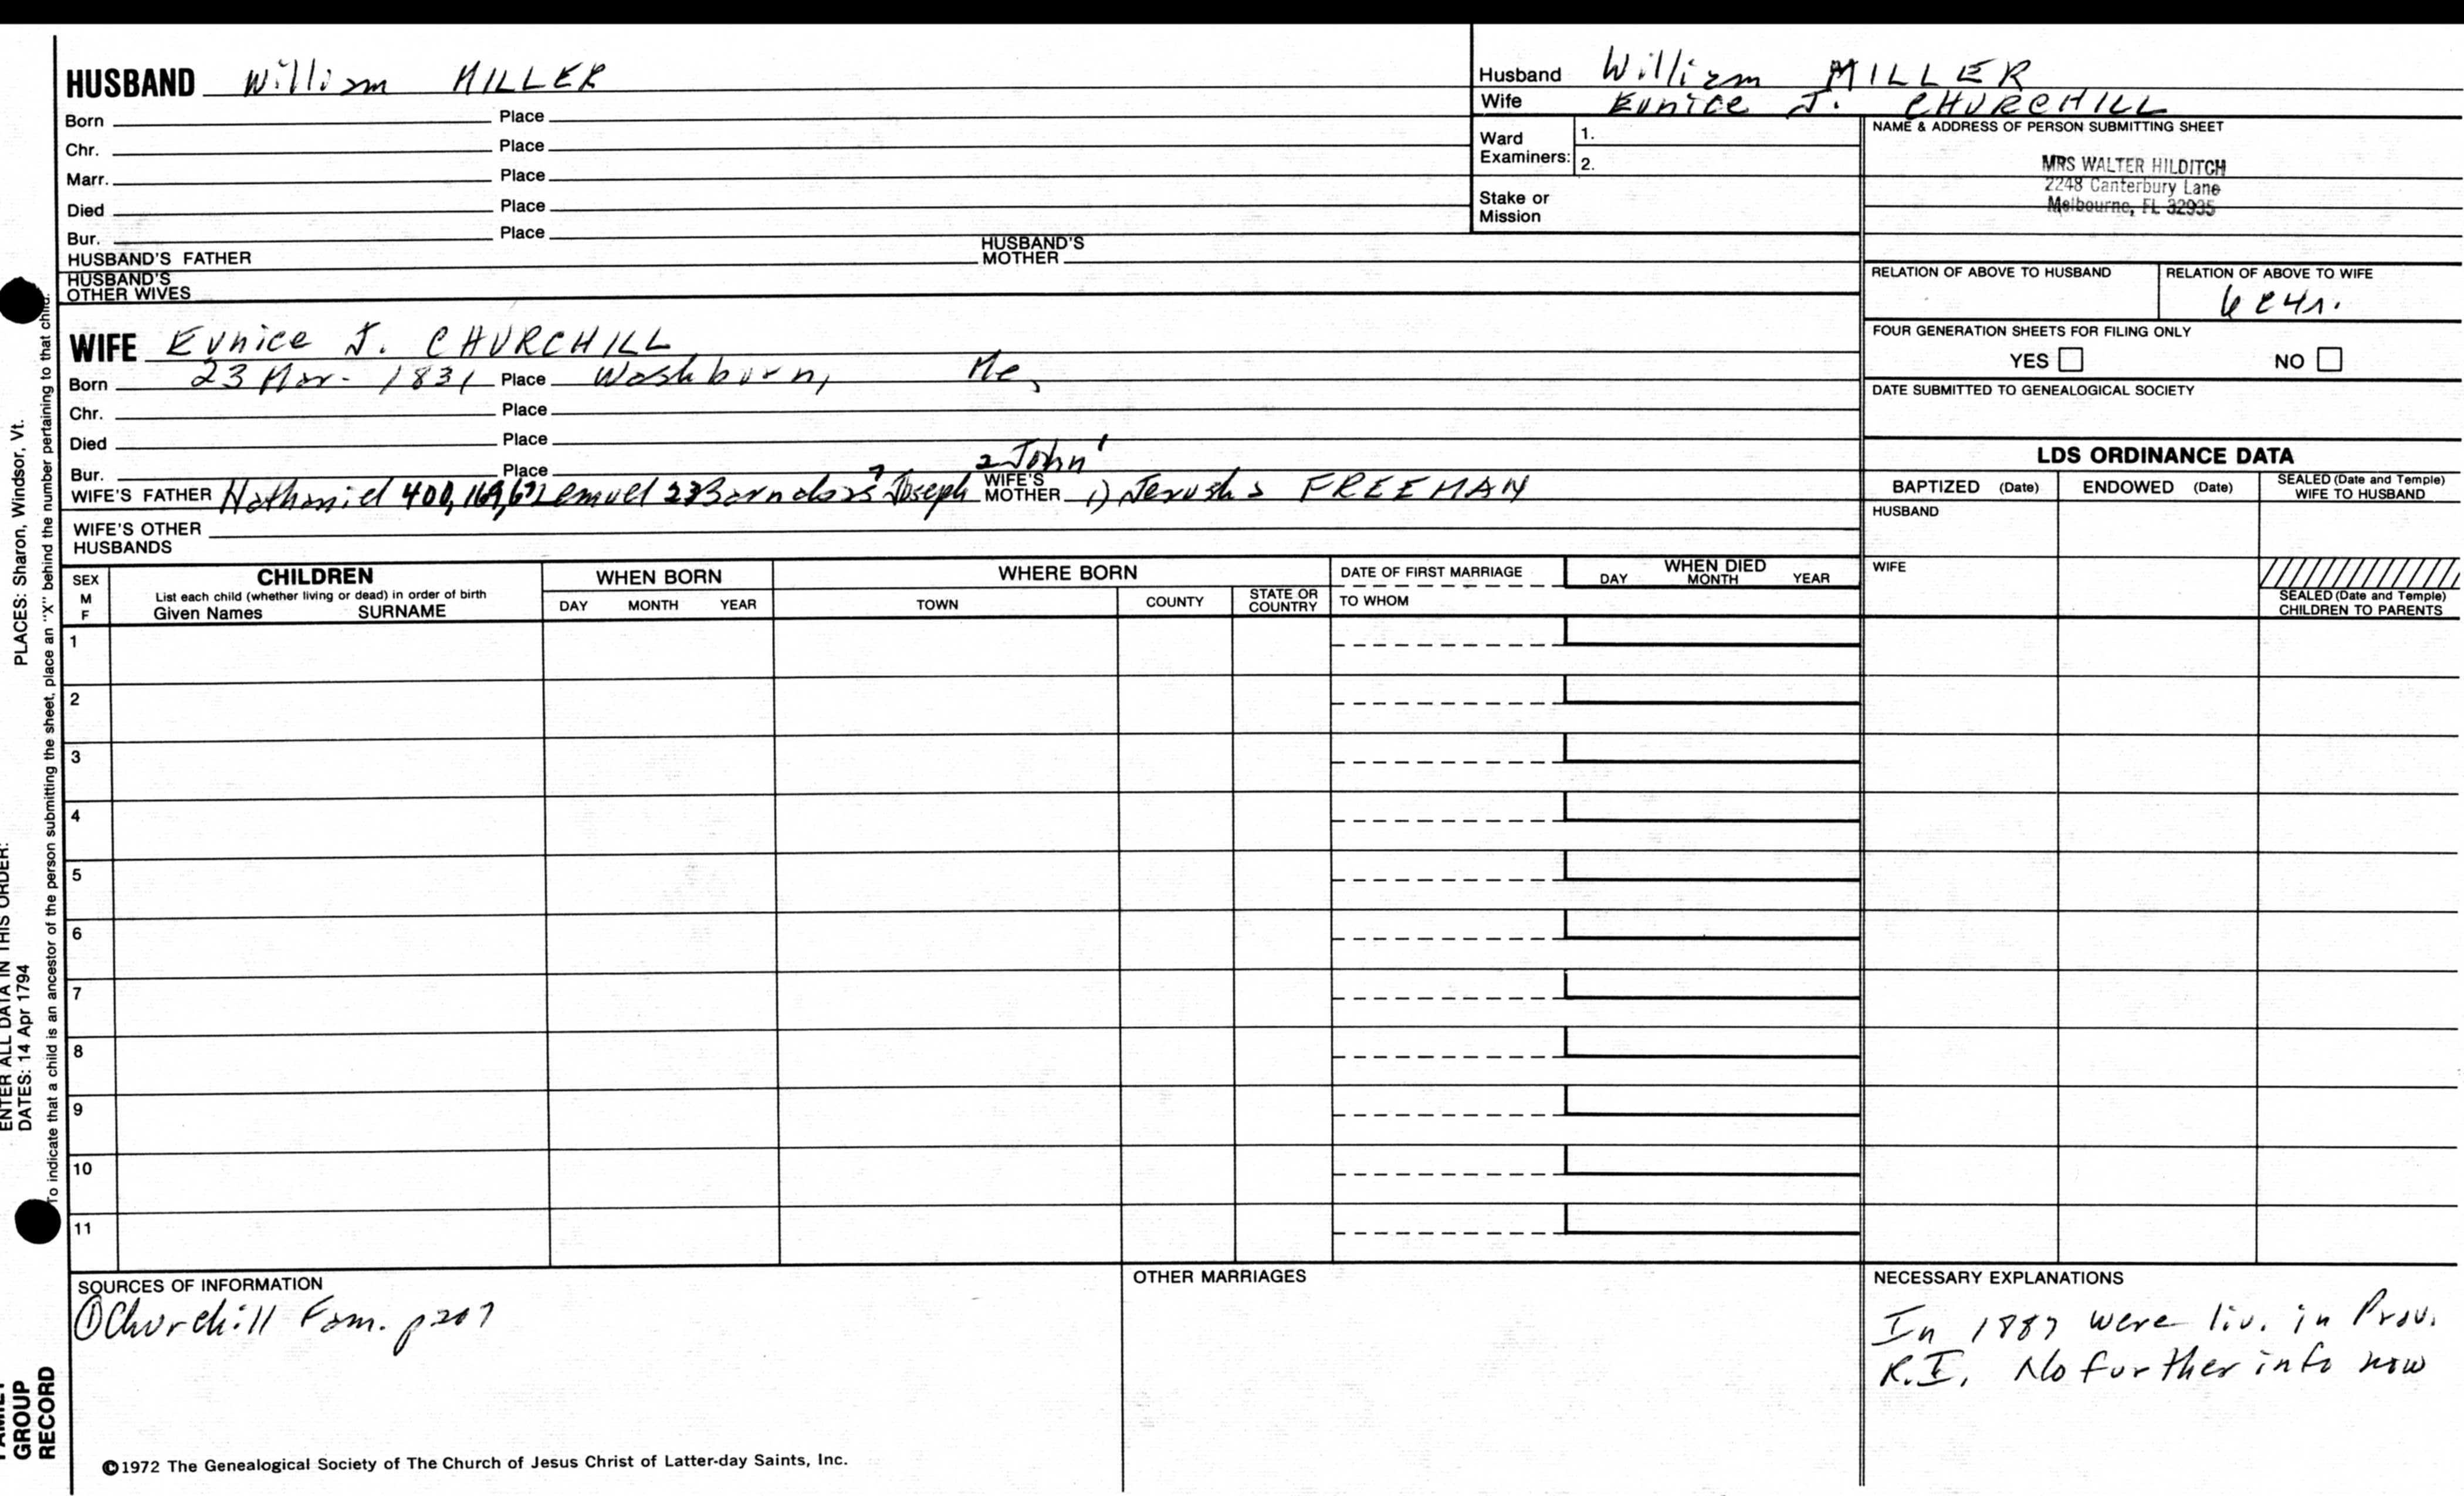 HUSBAND William MILLER
Born Place
Chr. Place
Marr. Place
Died Place
Bur. Place
HUSBAND'S FATHER HUSBAND'S MOTHER
HUSBAND'S OTHER WIVES
Husband William MILLER
Wife Eunice J. CHURCHILL
Ward Examiners: 1.
2.
Stake or Mission
NAME & ADDRESS OF PERSON SUBMITTING SHEET
MRS WALTER HILDITCH
2248 Canterbury Lane
Melbourne, FL 32935
RELATION OF ABOVE TO HUSBAND
RELATION OF ABOVE TO WIFE
FOUR GENERATION SHEETS FOR FILING ONLY
YES NO
DATE SUBMITTED TO GENEALOGICAL SOCIETY
WIFE Eunice J. CHURCHILL
Born 23 Mar. 1831 Place Washburn, Me,
Chr. Place
Died Place
Bur. Place
2 John 1
WIFE'S FATHER Nathaniel 400, 169, Lemuel Barnabas 3 Joseph WIFE'S MOTHER 1) Jerusha FREEMAN
WIFE'S OTHER HUSBANDS
LDS ORDINANCE DATA
BAPTIZED (Date) ENDOWED (Date) SEALED (Date and Temple) WIFE TO HUSBAND
HUSBAND
WIFE
SEALED (Date and Temple) CHILDREN TO PARENTS
SEX M F
CHILDREN
List each child (whether living or dead) in order of birth
Given Names SURNAME
WHEN BORN
DAY MONTH YEAR
WHERE BORN
TOWN COUNTY STATE OR COUNTRY
DATE OF FIRST MARRIAGE
TO WHOM
WHEN DIED
DAY MONTH YEAR
1
2
3
4
5
6
7
8
9
10
11
SOURCES OF INFORMATION
①Churchill Fam. p207
OTHER MARRIAGES
NECESSARY EXPLANATIONS
In 1887 were liv. in Prov.
R.I. No further info now
©1972 The Genealogical Society of The Church of Jesus Christ of Latter-day Saints, Inc.
PLACES: Sharon, Windsor, Vt.
To indicate that a child is an ancestor of the person submitting the sheet, place an "X" behind the number pertaining to that child.
ENTER ALL DATA IN THIS ORDER:
DATES: 14 Apr 1794
FAMILY
GROUP
RECORD